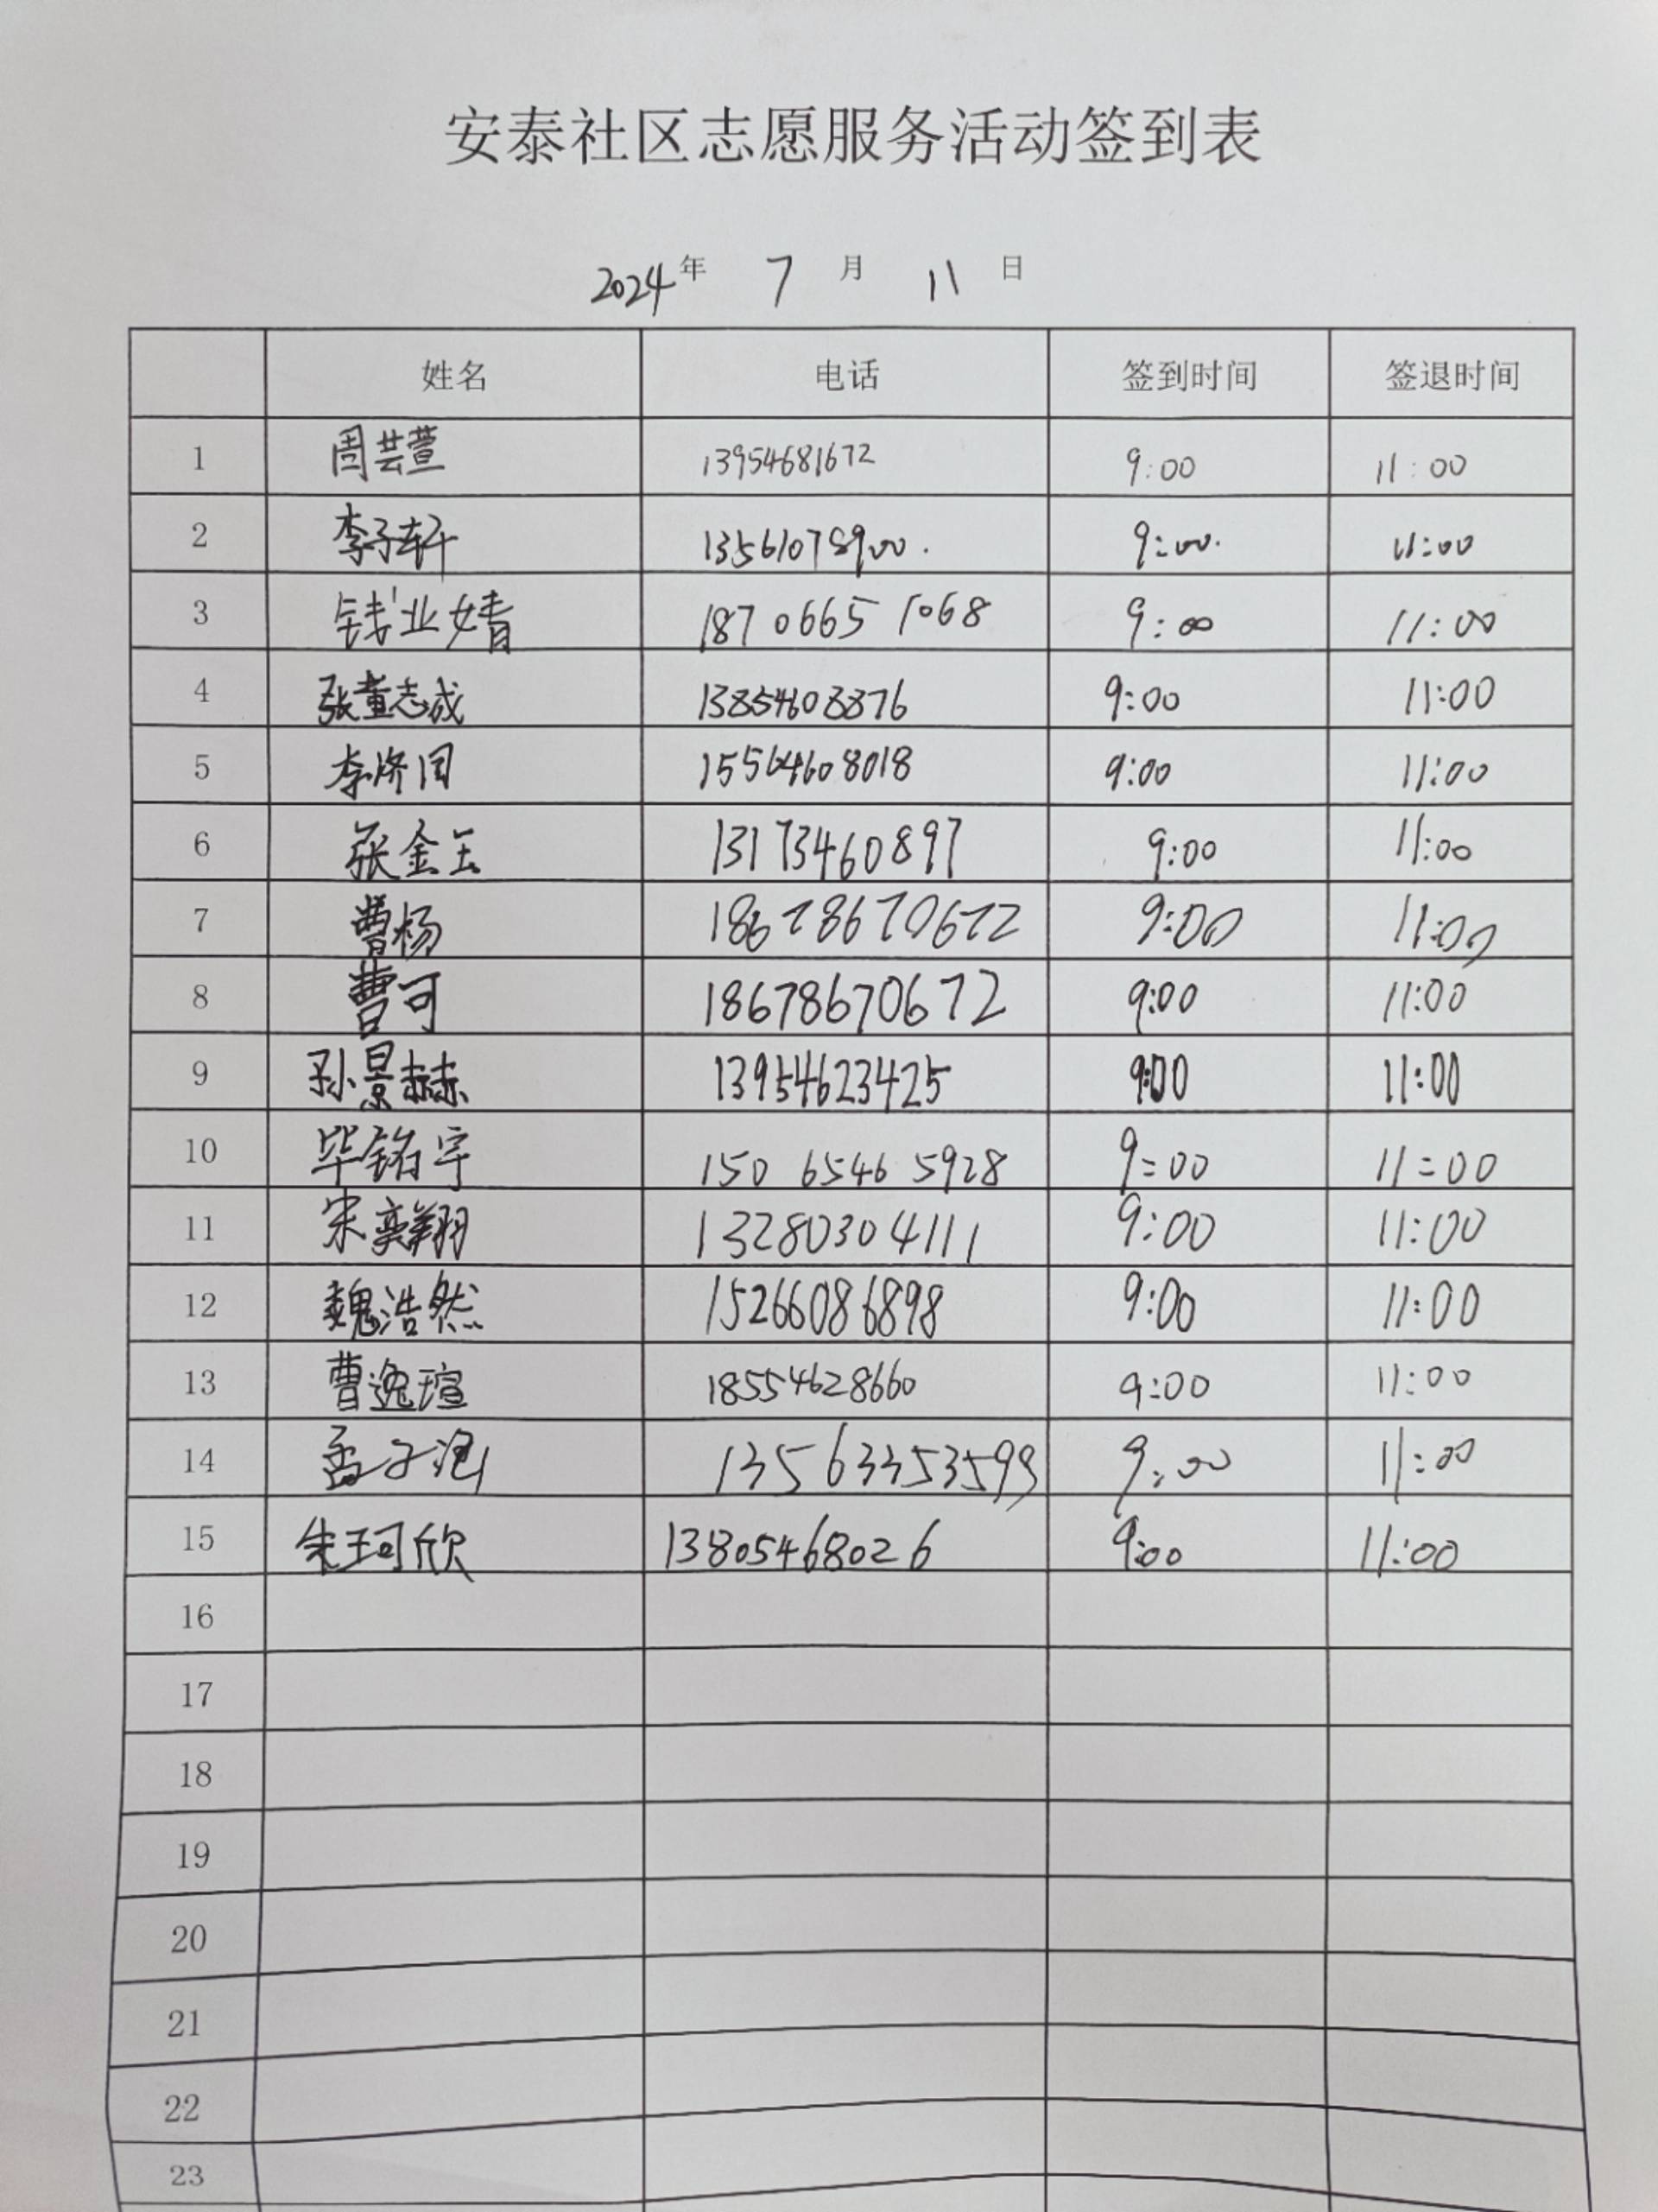 安泰社区志愿服务活动签到表
2024年 7 月 11 日
姓名 电话 签到时间 签退时间
1 周芸萱 13954681672 9:00 11:00
2 李子轩 13561078900. 9:00. 11:00
3 钱业婧 187 0665 1068 9:00 11:00
4 张董志成 13854608876 9:00 11:00
5 李济同 15564608018 9:00 11:00
6 张金玉 13173460897 9:00 11:00
7 曹杨 18678670672 9:00 11:00
8 曹可 18678670672 9:00 11:00
9 孙景赫 13954623425 9:00 11:00
10 毕铭宇 150 6546 5928 9:00 11:00
11 宋奕翔 13280304111 9:00 11:00
12 魏浩然 15266086898 9:00 11:00
13 曹逸瑄 18554628660 9:00 11:00
14 孟子涵 13563353599 9:00 11:00
15 朱珂欣 13805468026 9:00 11:00
16
17
18
19
20
21
22
23